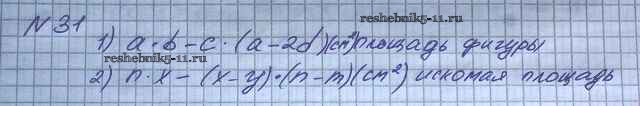 reshebnik5-11.ru
№ 31
1) a · b - c · (a - 2d) (cm²) площадь фигуры
reshebnik5-11.ru
2) n · x - (x - y) · (n - m) (cm²) искомая площадь